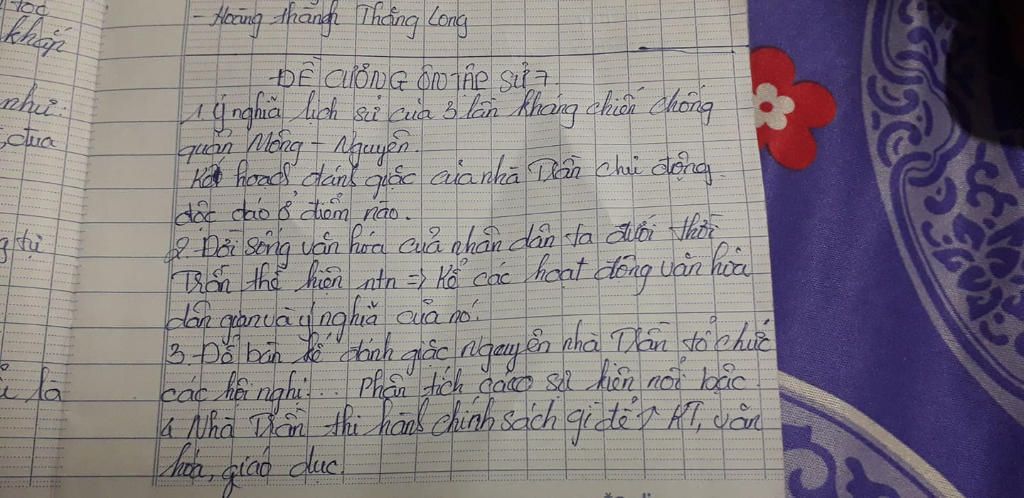 khắp
như:
, dưa
g tự
là
- Hoàng thành Thăng Long
ĐỀ CƯƠNG ÔN TẬP SỬ 7
1. Ý nghĩa lịch sử của 3 lần kháng chiến chống
quân Mông - Nguyên.
Kế hoạch đánh giặc của nhà Trần chủ động
độc đáo ở điểm nào.
2. Đời sống văn hóa của nhân dân ta dưới thời
Trần thể hiện ntn => Kể các hoạt động văn hóa
dân gian và ý nghĩa của nó.
3. Để bàn kế đánh giặc Nguyên nhà Trần tổ chức
các hội nghị... Phân tích các sự kiện nổi bậc.
4 Nhà Trần thi hành chính sách gì để ↑ KT, văn
hóa, giáo dục.